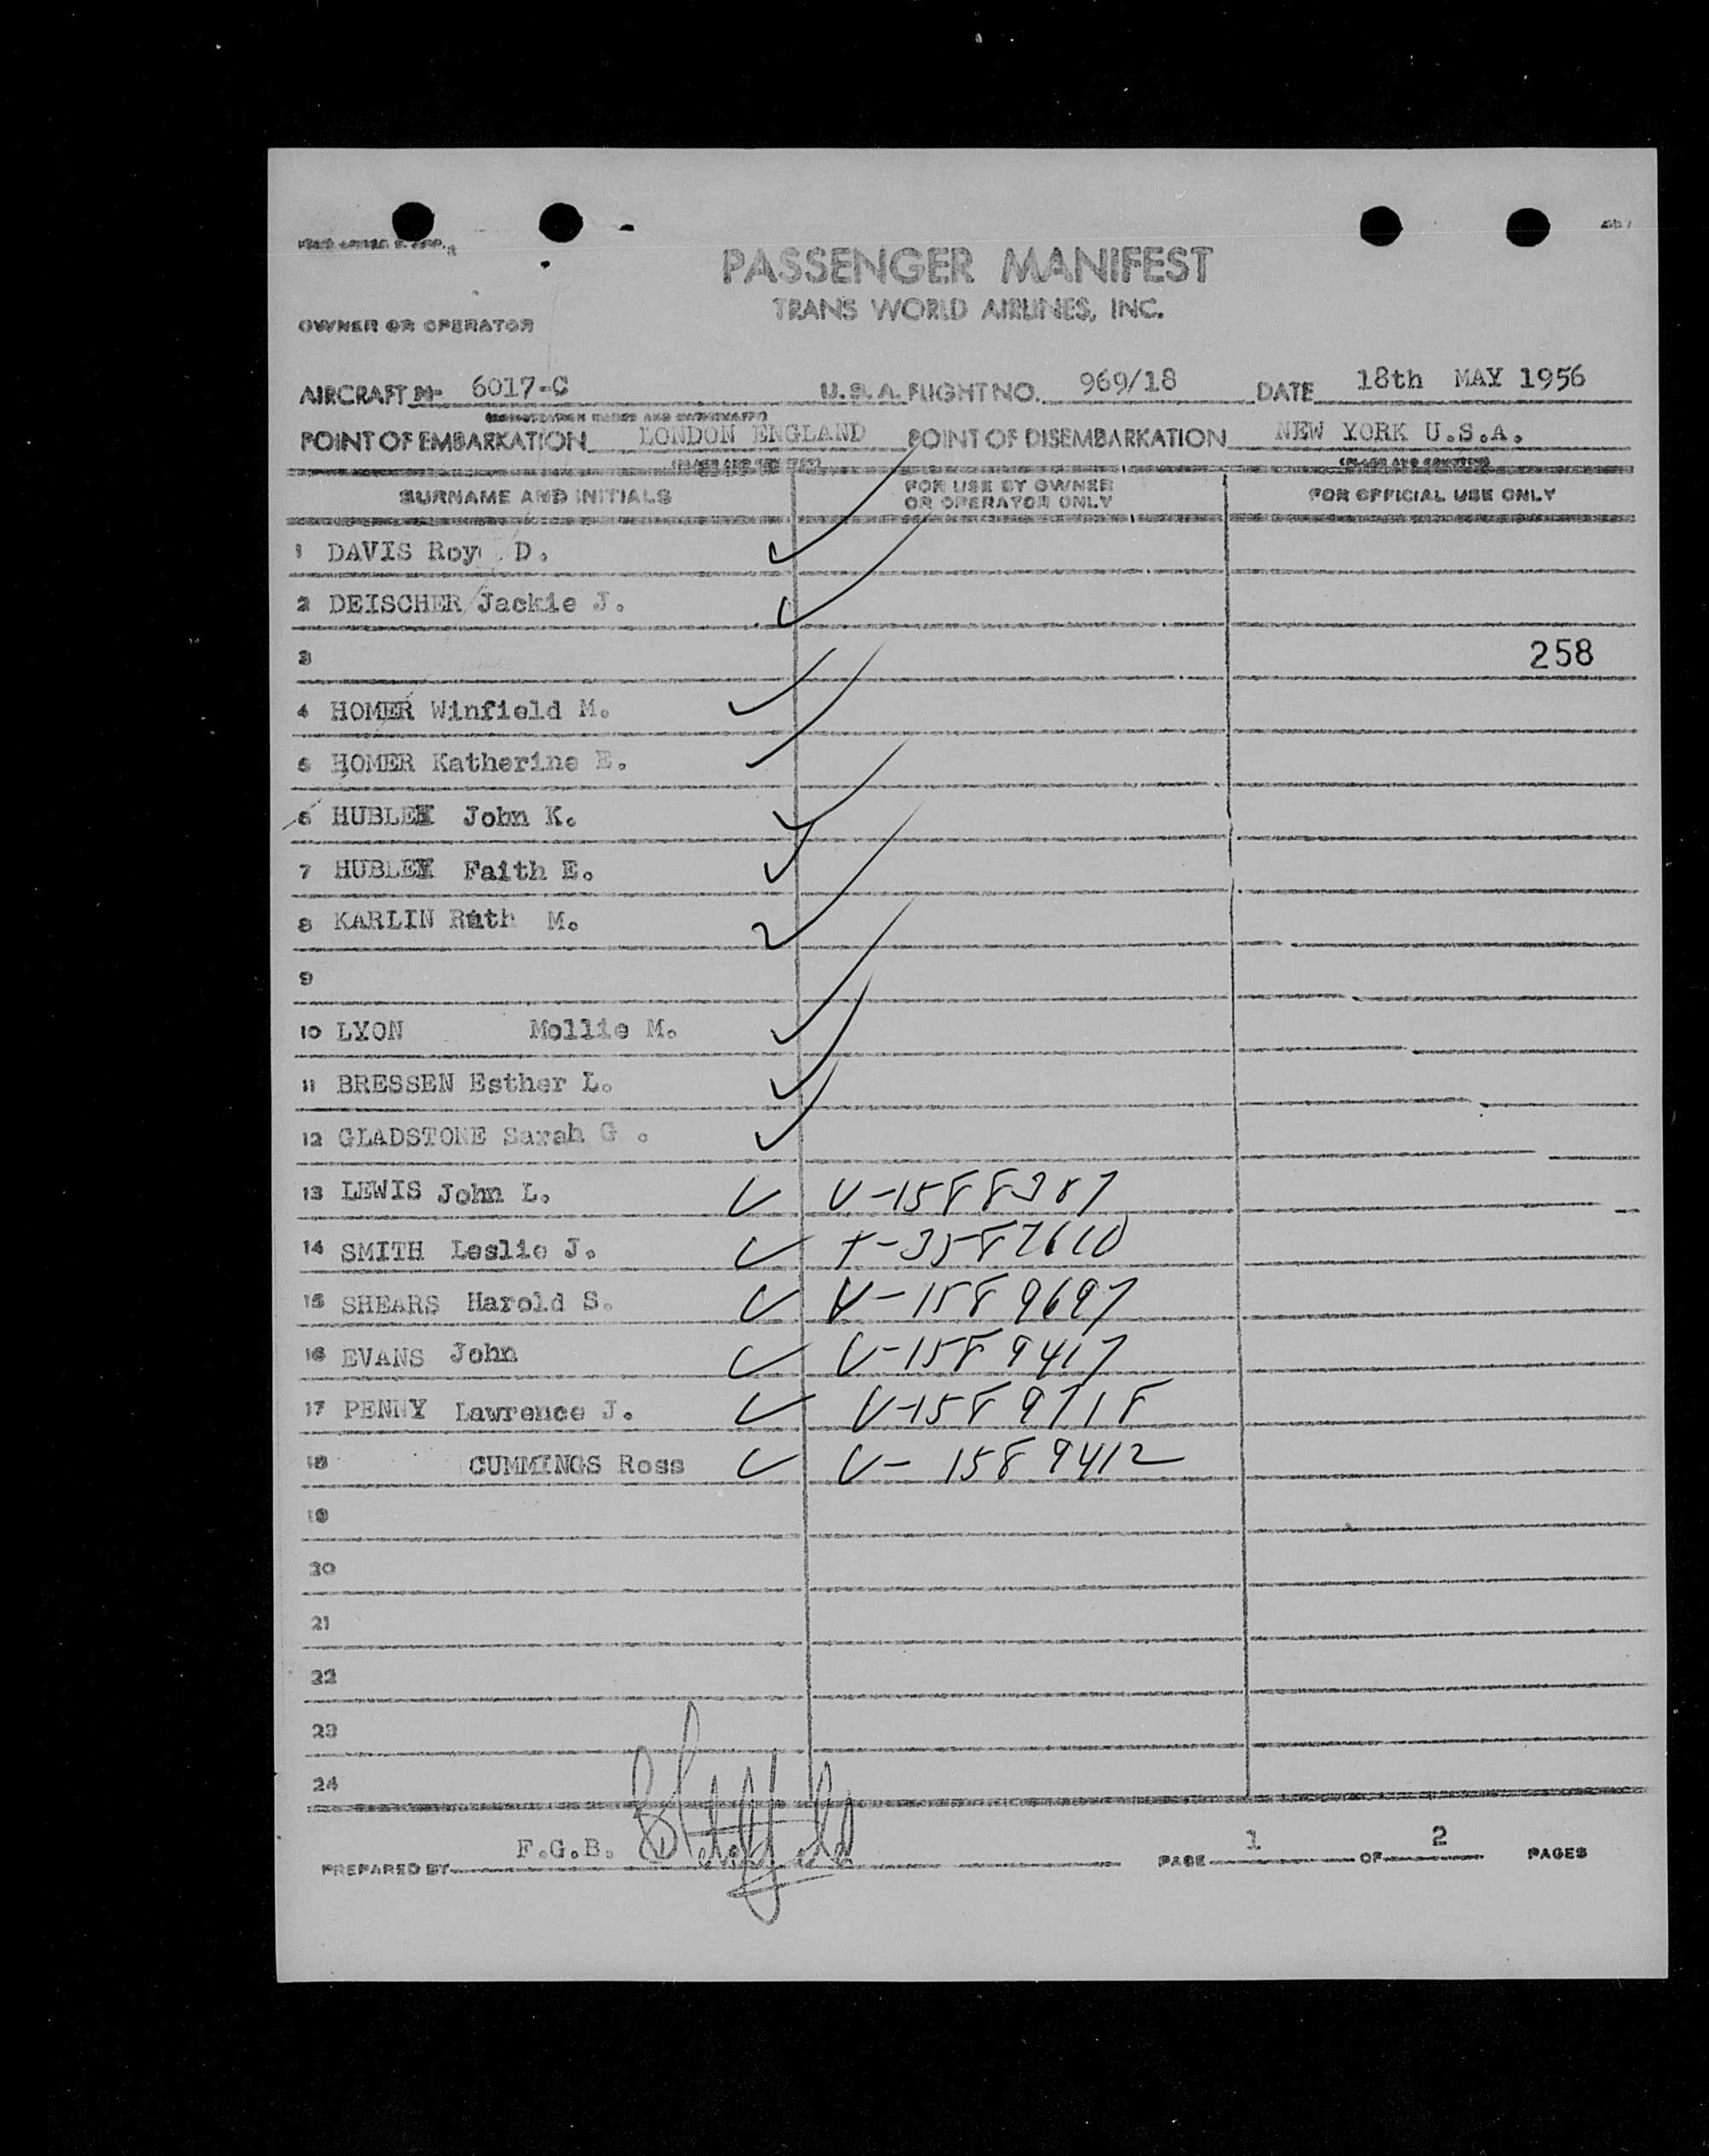 PASSENGER MANIFEST
TRANS WORLD AIRLINES, INC.
OWNER OR OPERATOR
AIRCRAFT 6017-C U.S.A. FLIGHT NO. 969/18 DATE 18th MAY 1956
POINT OF EMBARKATION LONDON ENGLAND POINT OF DISEMBARKATION NEW YORK U.S.A.
SURNAME AND INITIALS FOR USE BY OWNER OR OPERATOR ONLY FOR OFFICIAL USE ONLY
1 DAVIS Roy D.
2 DEISCHER Jackie J.
3 258
4 HOMER Winfield M.
5 HOMER Katherine E.
6 HUBLEY John K.
7 HUBLEY Faith E.
8 KARLIN Ruth M.
9
10 LYON Mollie M.
11 BRESSEN Esther L.
12 GLADSTONE Sarah G.
13 LEWIS John L. V-1588387
14 SMITH Leslie J.
15 SHEARS Harold S. V-1589697
16 EVANS John V-1589417
17 PENNY Lawrence J. V-1589718
18 CUMMINGS Ross V-1589412
19
20
21
22
23
24
PREPARED BY F.G.B. PAGE 1 OF 2 PAGES